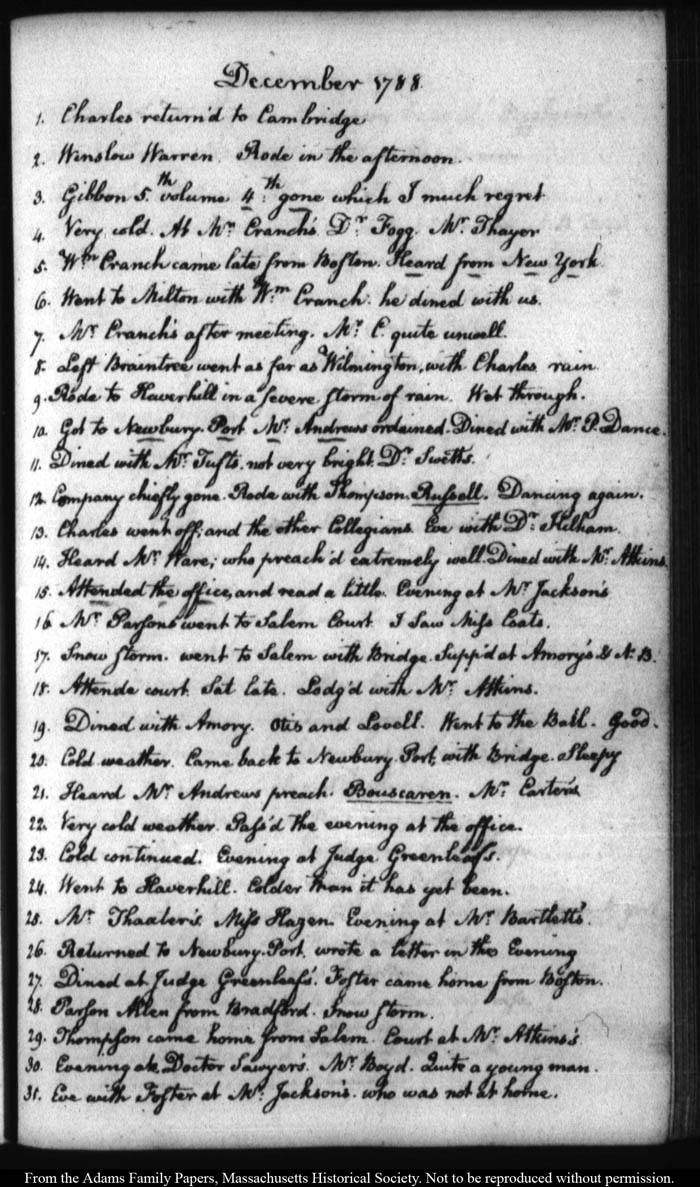 December 1788.
1. Charles return'd to Cambridge
2. Winslow Warren. Rode in the afternoon.
3. Gibbon 5.th volume 4.th gone which I much regret
4. Very cold. At Mr. Cranch's. Dr. Fogg. Mr. Thayer
5. Wm. Cranch came late from Boston. Heard from New York
6. Went to Milton with Wm. Cranch. he dined with us.
7. Mr. Cranch's after meeting. Mr. C. quite unwell.
8. Left Braintree went as far as Wilmington, with Charles. rain.
9. Rode to Haverhill in a severe storm of rain. Wet through.
10. Got to Newbury-Port. Mr. Andrews ordained. Dined with Mr. P. Dance.
11. Dined with Mr. Tufts. not very bright. Dr. Swett's.
12. Company chiefly gone. Rode with Thompson. Russell. Dancing again.
13. Charles went off; and the other Collegians. Eve with Dr. Kilham.
14. Heard Mr. Ware; who preach'd extremely well. Dined with Mr. Atkins.
15. Attended the office, and read a little. Evening at Mr. Jackson's
16. Mr. Parsons went to Salem Court. I saw Miss Coats.
17. Snow storm. went to Salem with Bridge. Supp'd at Amory's & N.B.
18. Attende court. Sat late. Lodg'd with Mr. Atkins.
19. Dined with Amory. Otis and Lovell. Went to the Ball. Good.
20. Cold weather. Came back to Newbury-Port, with Bridge. Sleepy
21. Heard Mr. Andrews preach. Bouscaren. Mr. Carter's
22. Very cold weather. Pass'd the evening at the office.
23. Cold continued. Evening at Judge Greenleaf's.
24. Went to Haverhill. Colder than it has yet been.
25. Mr. Thaxter's. Miss Hazen. Evening at Mr. Bartlett's.
26. Returned to Newbury-Port. wrote a letter in the Evening
27. Dined at Judge Greenleaf's. Foster came home from Boston.
28. Parson Allen from Bradford. Snow storm.
29. Thompson came home from Salem. Court at Mr. Atkins's
30. Evening at Doctor Sawyer's. Mr. Boyd. Quite a young man.
31. Eve with Foster at Mr. Jackson's. who was not at home.
From the Adams Family Papers, Massachusetts Historical Society. Not to be reproduced without permission.